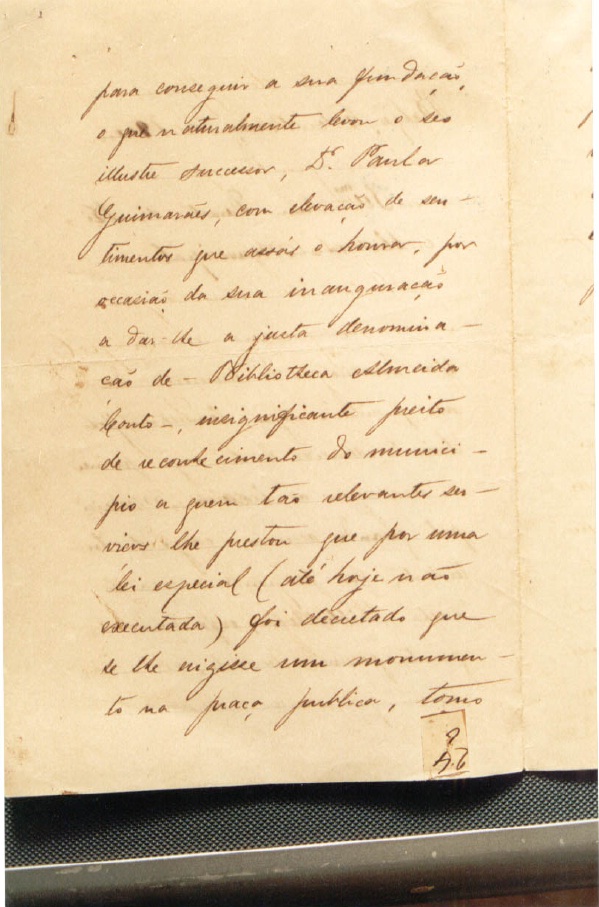 para conseguir a sua fundação,
o que naturalmente levou o seo
illustre successor, Dr. Paula
Guimarães, com elevação de sen-
timentos que assás o honrar, por
occasião da sua inauguração
a dar-lhe a justa denomina-
ção de - Bibliotheca Almeida
Couto -, insignificante preito
de reconhecimento do munici-
pio a quem tão relevantes ser-
viços lhe prestou que por uma
lei especial (até hoje não
executada) foi decretado que
se lhe erigisse um monumen-
to na praça publica, tomo